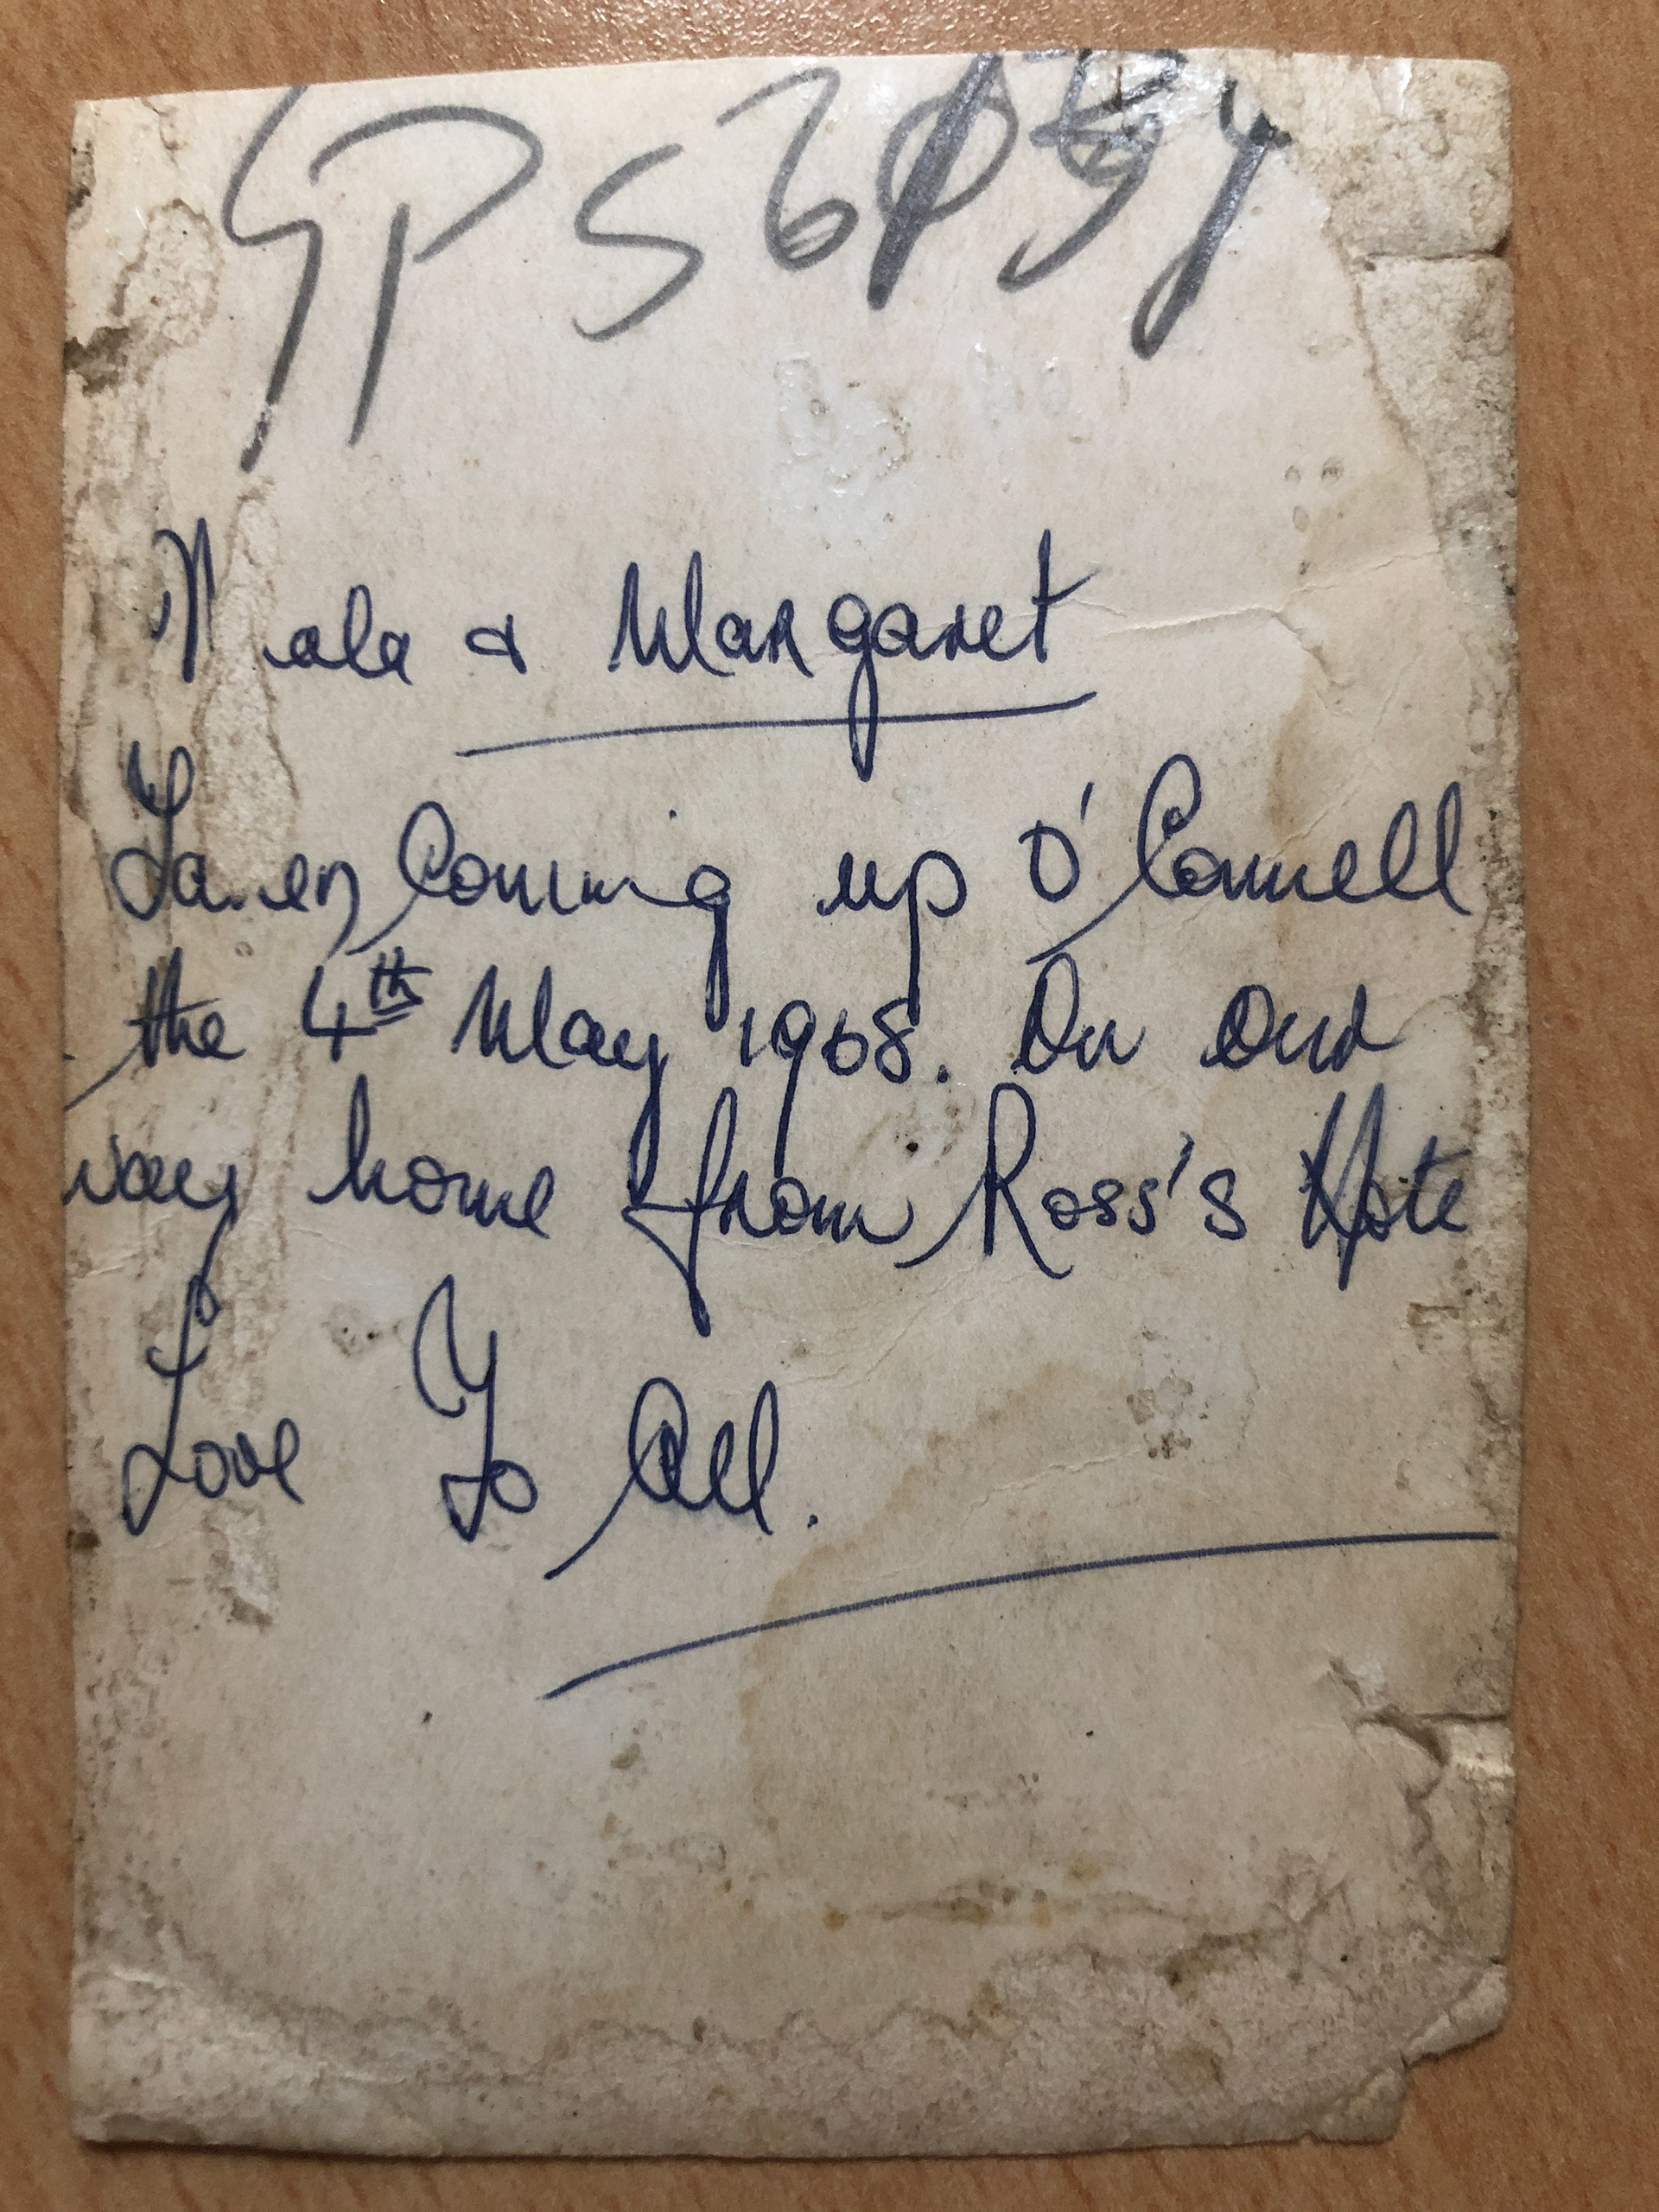 & Margaret
Coming up O'Connell
the 4th May 1968. On Our
way home from Ross's Hote
Love To All.